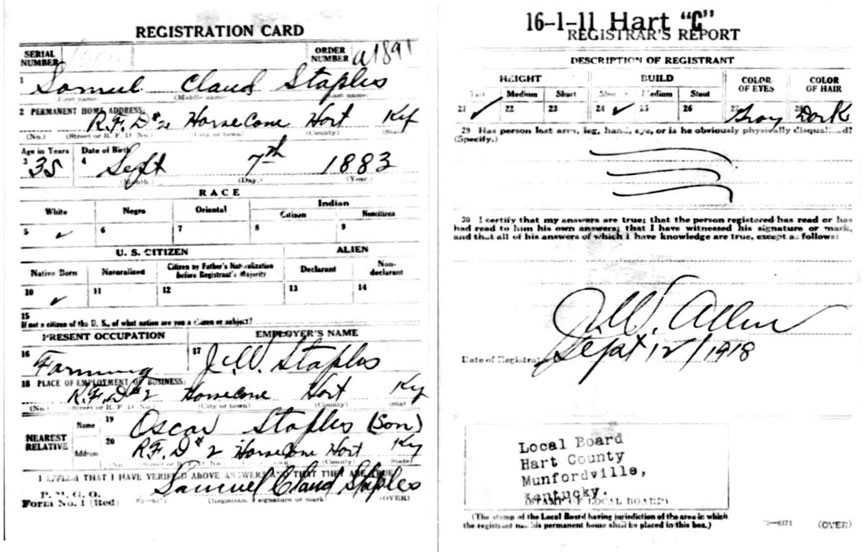 REGISTRATION CARD
SERIAL NUMBER
ORDER NUMBER a1891
1 Samuel Claud Staples
(Middle name)
2 PERMANENT HOME ADDRESS:
R.F.D #2 HorseCave Hart Ky
(No.) (Street or R. F. D. No.) (City or town) (County) (State)
Age in Years Date of Birth
3 35 4 Sept 7th 1883
(Month.) (Day.) (Year.)
RACE
White Negro Oriental Indian
Citizen Noncitizen
5 ✓ 6 7 8 9
U. S. CITIZEN ALIEN
Native Born Naturalized Citizen by Father's Naturalization before Registrant's Majority Declarant Non-declarant
10 ✓ 11 12 13 14
15
If not a citizen of the U. S., of what nation are you a citizen or subject?
PRESENT OCCUPATION EMPLOYER'S NAME
16 Farming 17 J.W. Staples
18 PLACE OF EMPLOYMENT OR BUSINESS:
R.F.D #2 HorseCave Hart Ky
(No.) (Street or R. F. D. No.) (City or town) (County) (State)
NEAREST RELATIVE
Name 19 Oscar Staples (Son)
Address 20 R.F.D #2 HorseCave Hart Ky
I AFFIRM THAT I HAVE VERIFIED ABOVE ANSWERS AND THAT THEY ARE TRUE
P. M. G. O.
Form No. 1 (Red) Samuel Claud Staples
(Registrant's signature or mark) (OVER)
16-1-11 Hart "C"
REGISTRAR'S REPORT
DESCRIPTION OF REGISTRANT
HEIGHT BUILD COLOR OF EYES COLOR OF HAIR
Tall Medium Short Slender Medium Stout
21 ✓ 22 23 24 ✓ 25 26 27 Gray 28 Dark
29 Has person lost arm, leg, hand, eye, or is he obviously physically disqualified?
(Specify.)
30 I certify that my answers are true; that the person registered has read or has
had read to him his own answers; that I have witnessed his signature or mark,
and that all of his answers of which I have knowledge are true, except as follows:
J.W. Allen
Date of Registration Sept 12/1918
Local Board
Hart County
Munfordville,
Kentucky.
(STAMP OF LOCAL BOARD)
(The stamp of the Local Board having jurisdiction of the area in which
the registrant has his permanent home shall be placed in this box.)
(OVER)